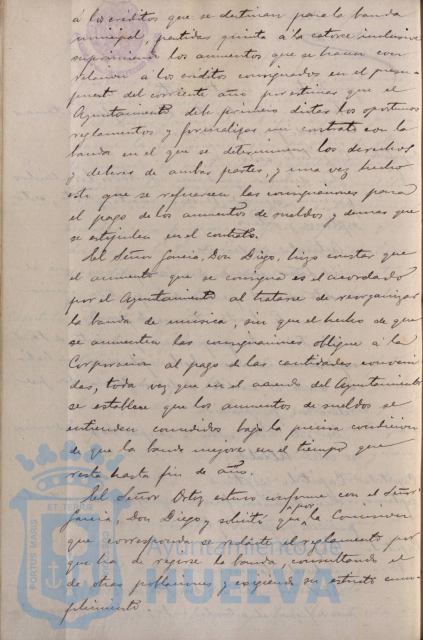 á los créditos que se destinan para la banda
municipal, partidas quinta á la catorce inclusive
suprimiendo los aumentos que se hacen con
relacion a los créditos consignados en el presu-
puesto del corriente año por estimar que el
Ayuntamiento debe primero dictar los oportunos
reglamentos y formalizar un contrato con la
banda en el que se determinen los derechos
y deberes de ambas partes, y una vez hecho
esto que se refuercen las consignaciones para
el pago de los aumentos de sueldos y demas que
se estipulen en el contrato.
El Señor Garcia, Don Diego, hizo constar que
el aumento que se consigna es el acordado
por el Ayuntamiento al tratarse de reorganizar
la banda de música, sin que el hecho de que
se aumenten las consignaciones obligue á la
Corporacion al pago de las cantidades
das, toda vez que en el acuerdo del Ayuntamiento
se establece que los aumentos de sueldos se
entienden concedidos bajo la precisa condicion
de que la banda mejore en el tiempo que
resta hasta fin de año.
El Señor Ortiz estuvo conforme con el Señor
Garcia, Don Diego y solicitó que por la Comision
que corresponda se redacte el reglamento por
que ha de regirse la banda, consultando el
de otras poblaciones y exigiendo su estricto cum-
plimiento.
PORTUS MARIS
ET TERRÆ
Ayuntamiento de
HUELVA